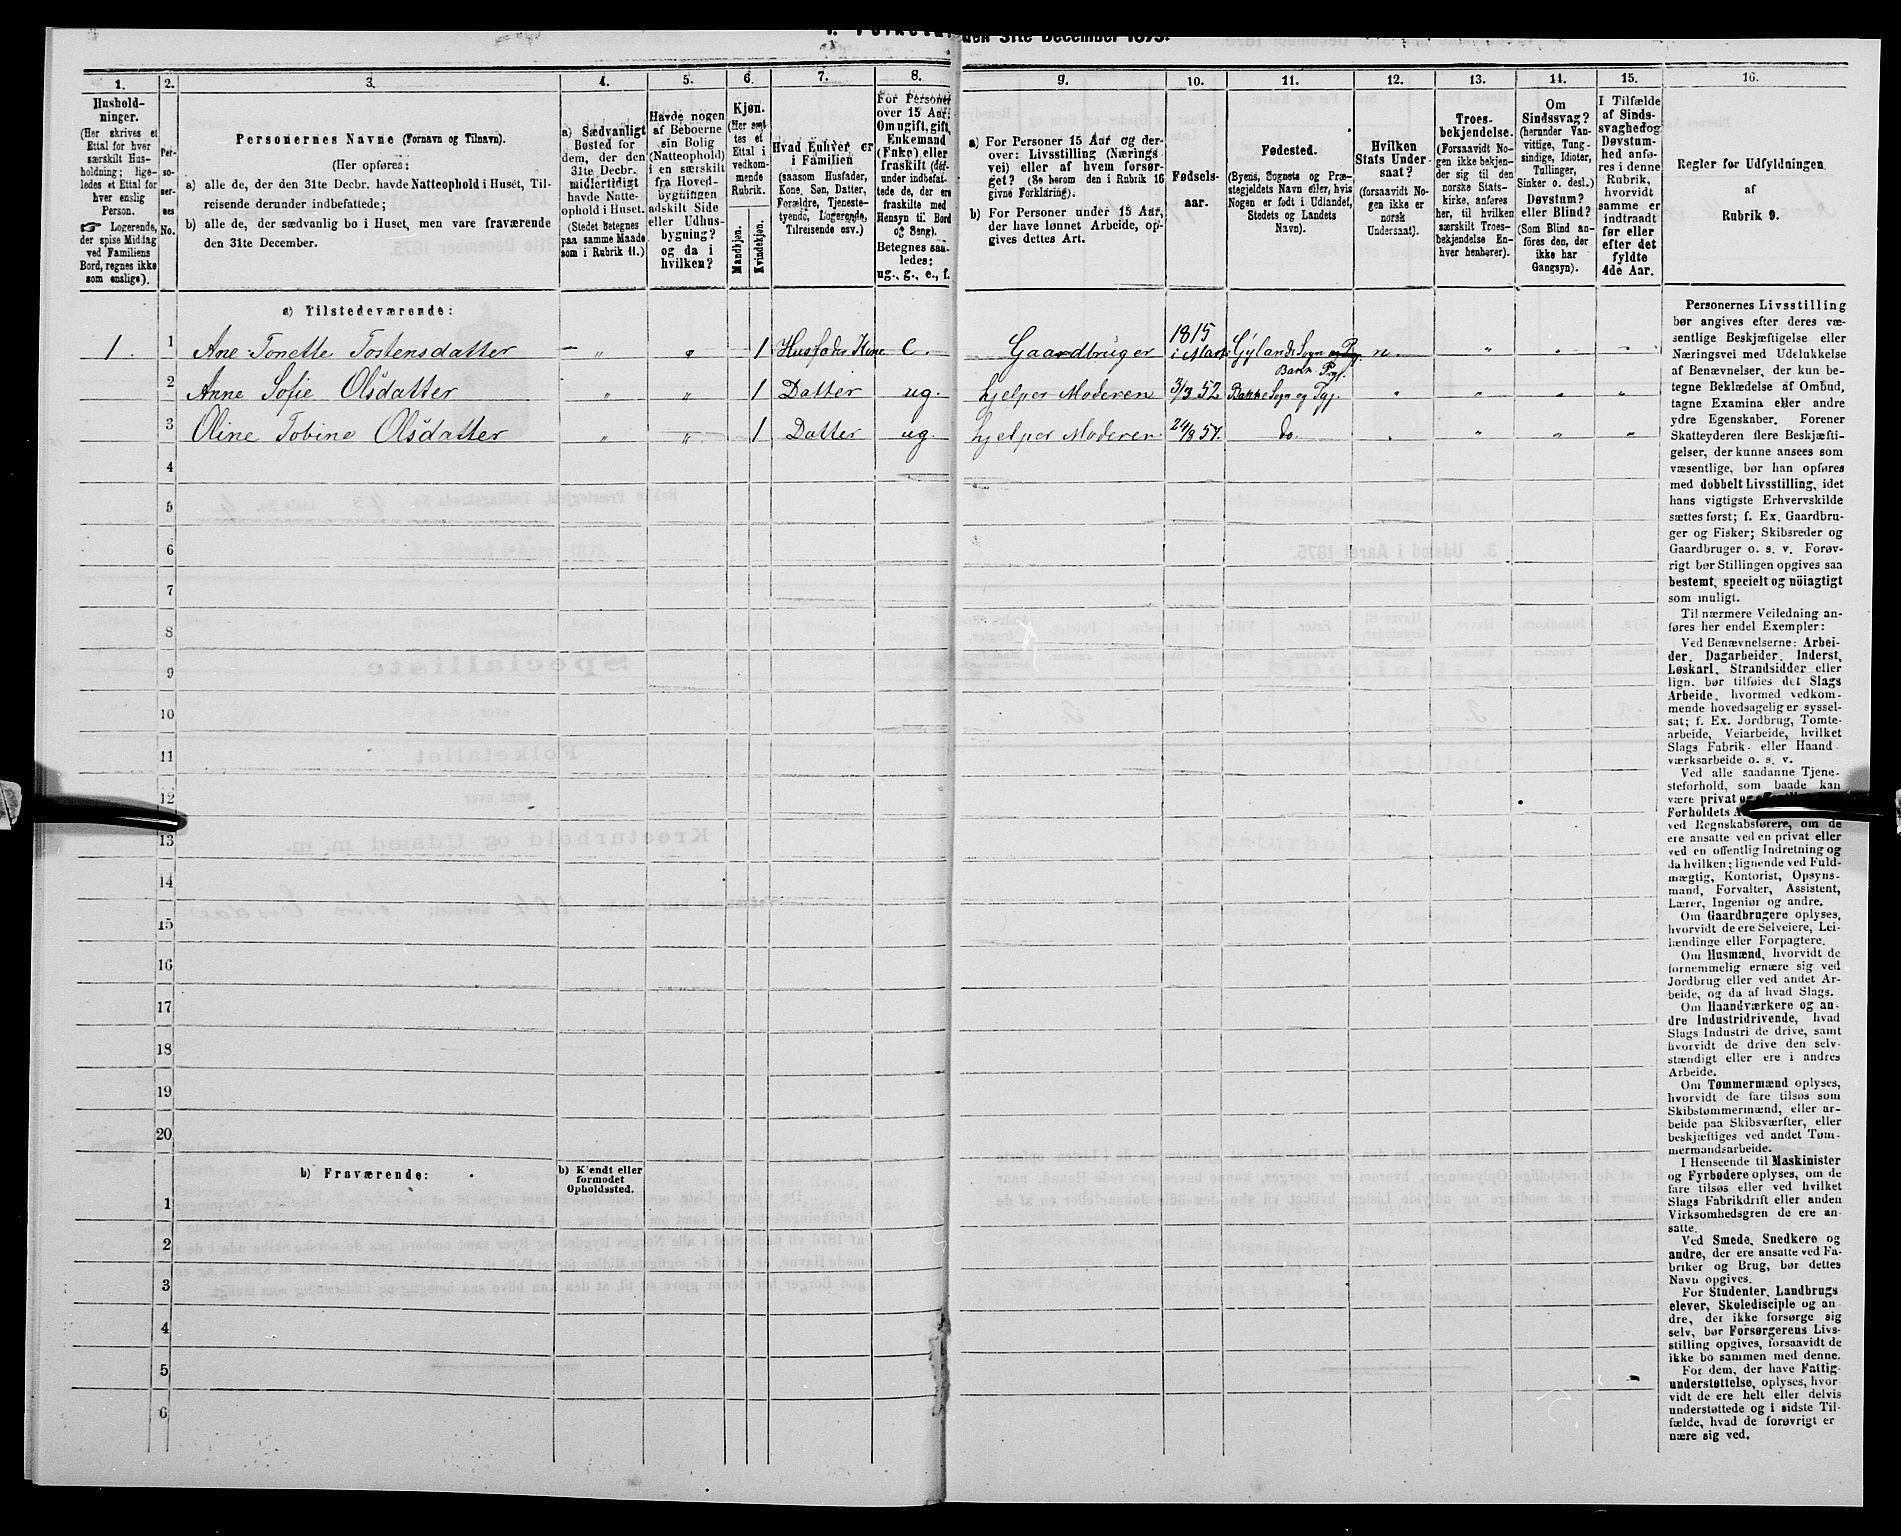 den 31te December 1875.
1.
2.
3.
4.
5.
6.
7.
8.
9.
10.
11.
12.
13.
14.
15.
16.
Hushold-
ninger.
(Her skrives et
Ettal for hver
særskilt Hus-
holdning; lige-
ledes et Ettal for
hver enslig
Person.
☞ Logerende,
der spise Middag
ved Familiens
Bord, regnes ikke
som enslige).
Per-
so-
ner-
nes
No.
Personernes Navne (Fornavn og Tilnavn).
(Her opføres:
a) alle de, der den 31te Decbr. havde Natteophold i Huset, Til-
reisende derunder indbefattede;
b) alle de, der sædvanlig bo i Huset, men vare fraværende
den 31te December.
a) Sædvanligt
Bosted for
dem, der den
31te Decbr.
midlertidigt
havde Natte-
ophold i Huset.
(Stedet betegnes
paa samme Maade
som i Rubrik 11.)
Havde nogen
af Beboerne
sin Bolig
(Natteophold)
i en særskilt
fra Hoved-
bygningen
adskilt Side
eller Udhus-
bygning?
og da i
hvilken?
Kjøn.
(Her sæt-
tes et
Ettal i
vedkom-
mende
Rubrik.
Mandkjøn.
Kvindekjøn.
Hvad Enhver er
i Familien
(saasom Husfader,
Kone, Søn, Datter,
Forældre, Tjeneste-
tyende, Logerende,
Tilreisende osv.)
For Personer
over 15 Aar:
Om ugift, gift,
Enkemand
(Enke) eller
fraskilt (der-
under indbefat-
tede de, der ere
fraskilte med
Hensyn til Bord
og Seng).
Betegnes saa-
ledes:
ug., g., e., f.
a) For Personer 15 Aar og der-
over: Livsstilling (Nærings-
vei) eller af hvem forsør-
get? (Se herom den i Rubrik 16
givne Forklaring).
b) For Personer under 15 Aar,
der have lønnet Arbeide, op-
gives dettes Art.
Fødsels-
aar.
Fødested.
(Byens, Sognets og Præ-
stegjeldets Navn eller, hvis
Nogen er født i Udlandet,
Stedets og Landets
Navn).
Hvilken
Stats Under-
saat?
(forsaavidt No-
gen ikke er
norsk
Undersaat).
Troes-
bekjendelse.
(Forsaavidt No-
gen ikke bekjen-
der sig til den
norske Stats-
kirke, anføres
her, til hvilken
særskilt Troes-
bekjendelse En-
hver henhører).
Om
Sindssvag?
(herunder Van-
vittige, Tung-
sindige, Idioter,
Tullinger,
Sinker o. desl.)
Døvstum?
eller Blind?
(Som Blind an-
føres den, der
ikke har
Gangsyn).
I Tilfælde
af Sinds-
svaghed og
Døvstum-
hed anfø-
res i denne
Rubrik,
hvorvidt
samme er
indtraadt
før eller
efter det
fyldte
4de Aar.
Regler for Udfyldningen
af
Rubrik 9.
a) Tilstedeværende:
1. 1 Ane Tonette Tostensdatter — " " 1 Husfaders Kone e. Gaardbruger 1815 i Marts Gylands Sogn og Bakke Pgj. n. " " "
2 Anne Sofie Olsdatter " " 1 Datter ug. hjelper Moderen 3/3 52 Bakke Sogn og Pgj. " " " "
3 Oline Tobine Olsdatter " " 1 Datter ug. hjelper Moderen 24/8 57. do. " " " "
4
5
6
7
8
9
10
11
12
13
14
15
16
17
18
19
20
b) Fraværende:
b) Kjendt eller
formodet
Opholdssted.
1
2
3
4
5
6
Personernes Livsstilling
bør angives efter deres væ-
sentlige Beskjæftigelse eller
Næringsvei med Udelukkelse
af Benævnelser, der kun be-
tegne Beklædelse af Ombud,
tagne Examina eller andre
ydre Egenskaber. Forener
Skatteyderen flere Beskjæfti-
gelser, der kunne ansees som
væsentlige, bør han opføres
med dobbelt Livsstilling, idet
hans vigtigste Erhvervskilde
sættes først; f. Ex. Gaardbru-
ger og Fisker; Skibsreder og
Gaardbruger o. s. v. Forøv-
rigt bør Stillingen opgives saa
bestemt, specielt og nöiagtigt
som muligt.
Til nærmere Veiledning an-
føres her endel Exempler:
Ved Benævnelserne: Arbei-
der, Dagarbeider, Inderst,
Løskarl, Strandsidder eller
lign. bør tilføies det Slags
Arbeide, hvormed vedkom-
mende hovedsagelig er syssel-
sat; f. Ex. Jordbrug, Tomte-
arbeide, Veiarbeide, hvilket
Slags Fabrik- eller Haand-
værksarbeide o. s. v.
Ved alle saadanne Tjene-
steforhold, som baade kan
være privat og
Forholdets
ved Regnskabsførere, om de
ere ansatte ved en privat eller
ved en offentlig Indretning og
da hvilken; lignende ved Fuld-
mægtig, Kontorist, Opsyns-
mand, Forvalter, Assistent,
Lærer, Ingeniør og andre.
Om Gaardbrugere oplyses,
hvorvidt de ere Selveiere, Lei-
lændinge eller Forpagtere.
Om Husmænd, hvorvidt de
fornemmelig ernære sig ved
Jordbrug eller ved andet Ar-
beide, og da af hvad Slags.
Om Haandværkere og an-
dre Industridrivende, hvad
Slags Industri de drive, samt
hvorvidt de drive den selv-
stændigt eller ere i andres
Arbeide.
Om Tømmermænd oplyses,
hvorvidt de fare tilsøs som
Skibstømmermænd, eller ar-
beide paa Skibsværfter, eller
beskjæftiges ved andet Tøm-
mermandsarbeide.
I Henseende til Maskinister
og Fyrbødere oplyses, om de
fare tilsøs eller ved hvilket
Slags Fabrikdrift eller anden
Virksomhedsgren de ere an-
satte.
Ved Smede, Snedkere og
andre, der ere ansatte ved Fa-
briker og Brug, bør dettes
Navn opgives.
For Studenter, Landbrugs-
elever, Skoledisciple og an-
dre, der ikke forsørge sig
selv, bør Forsørgerens Livs-
stilling opgives, forsaavidt de
ikke bo sammen med denne.
For dem, der have Fattig-
understøttelse, oplyses, hvor-
vidt de ere helt eller delvis
understøttede og i sidste Til-
fælde, hvad de forøvrigt er-
nære sig ved.